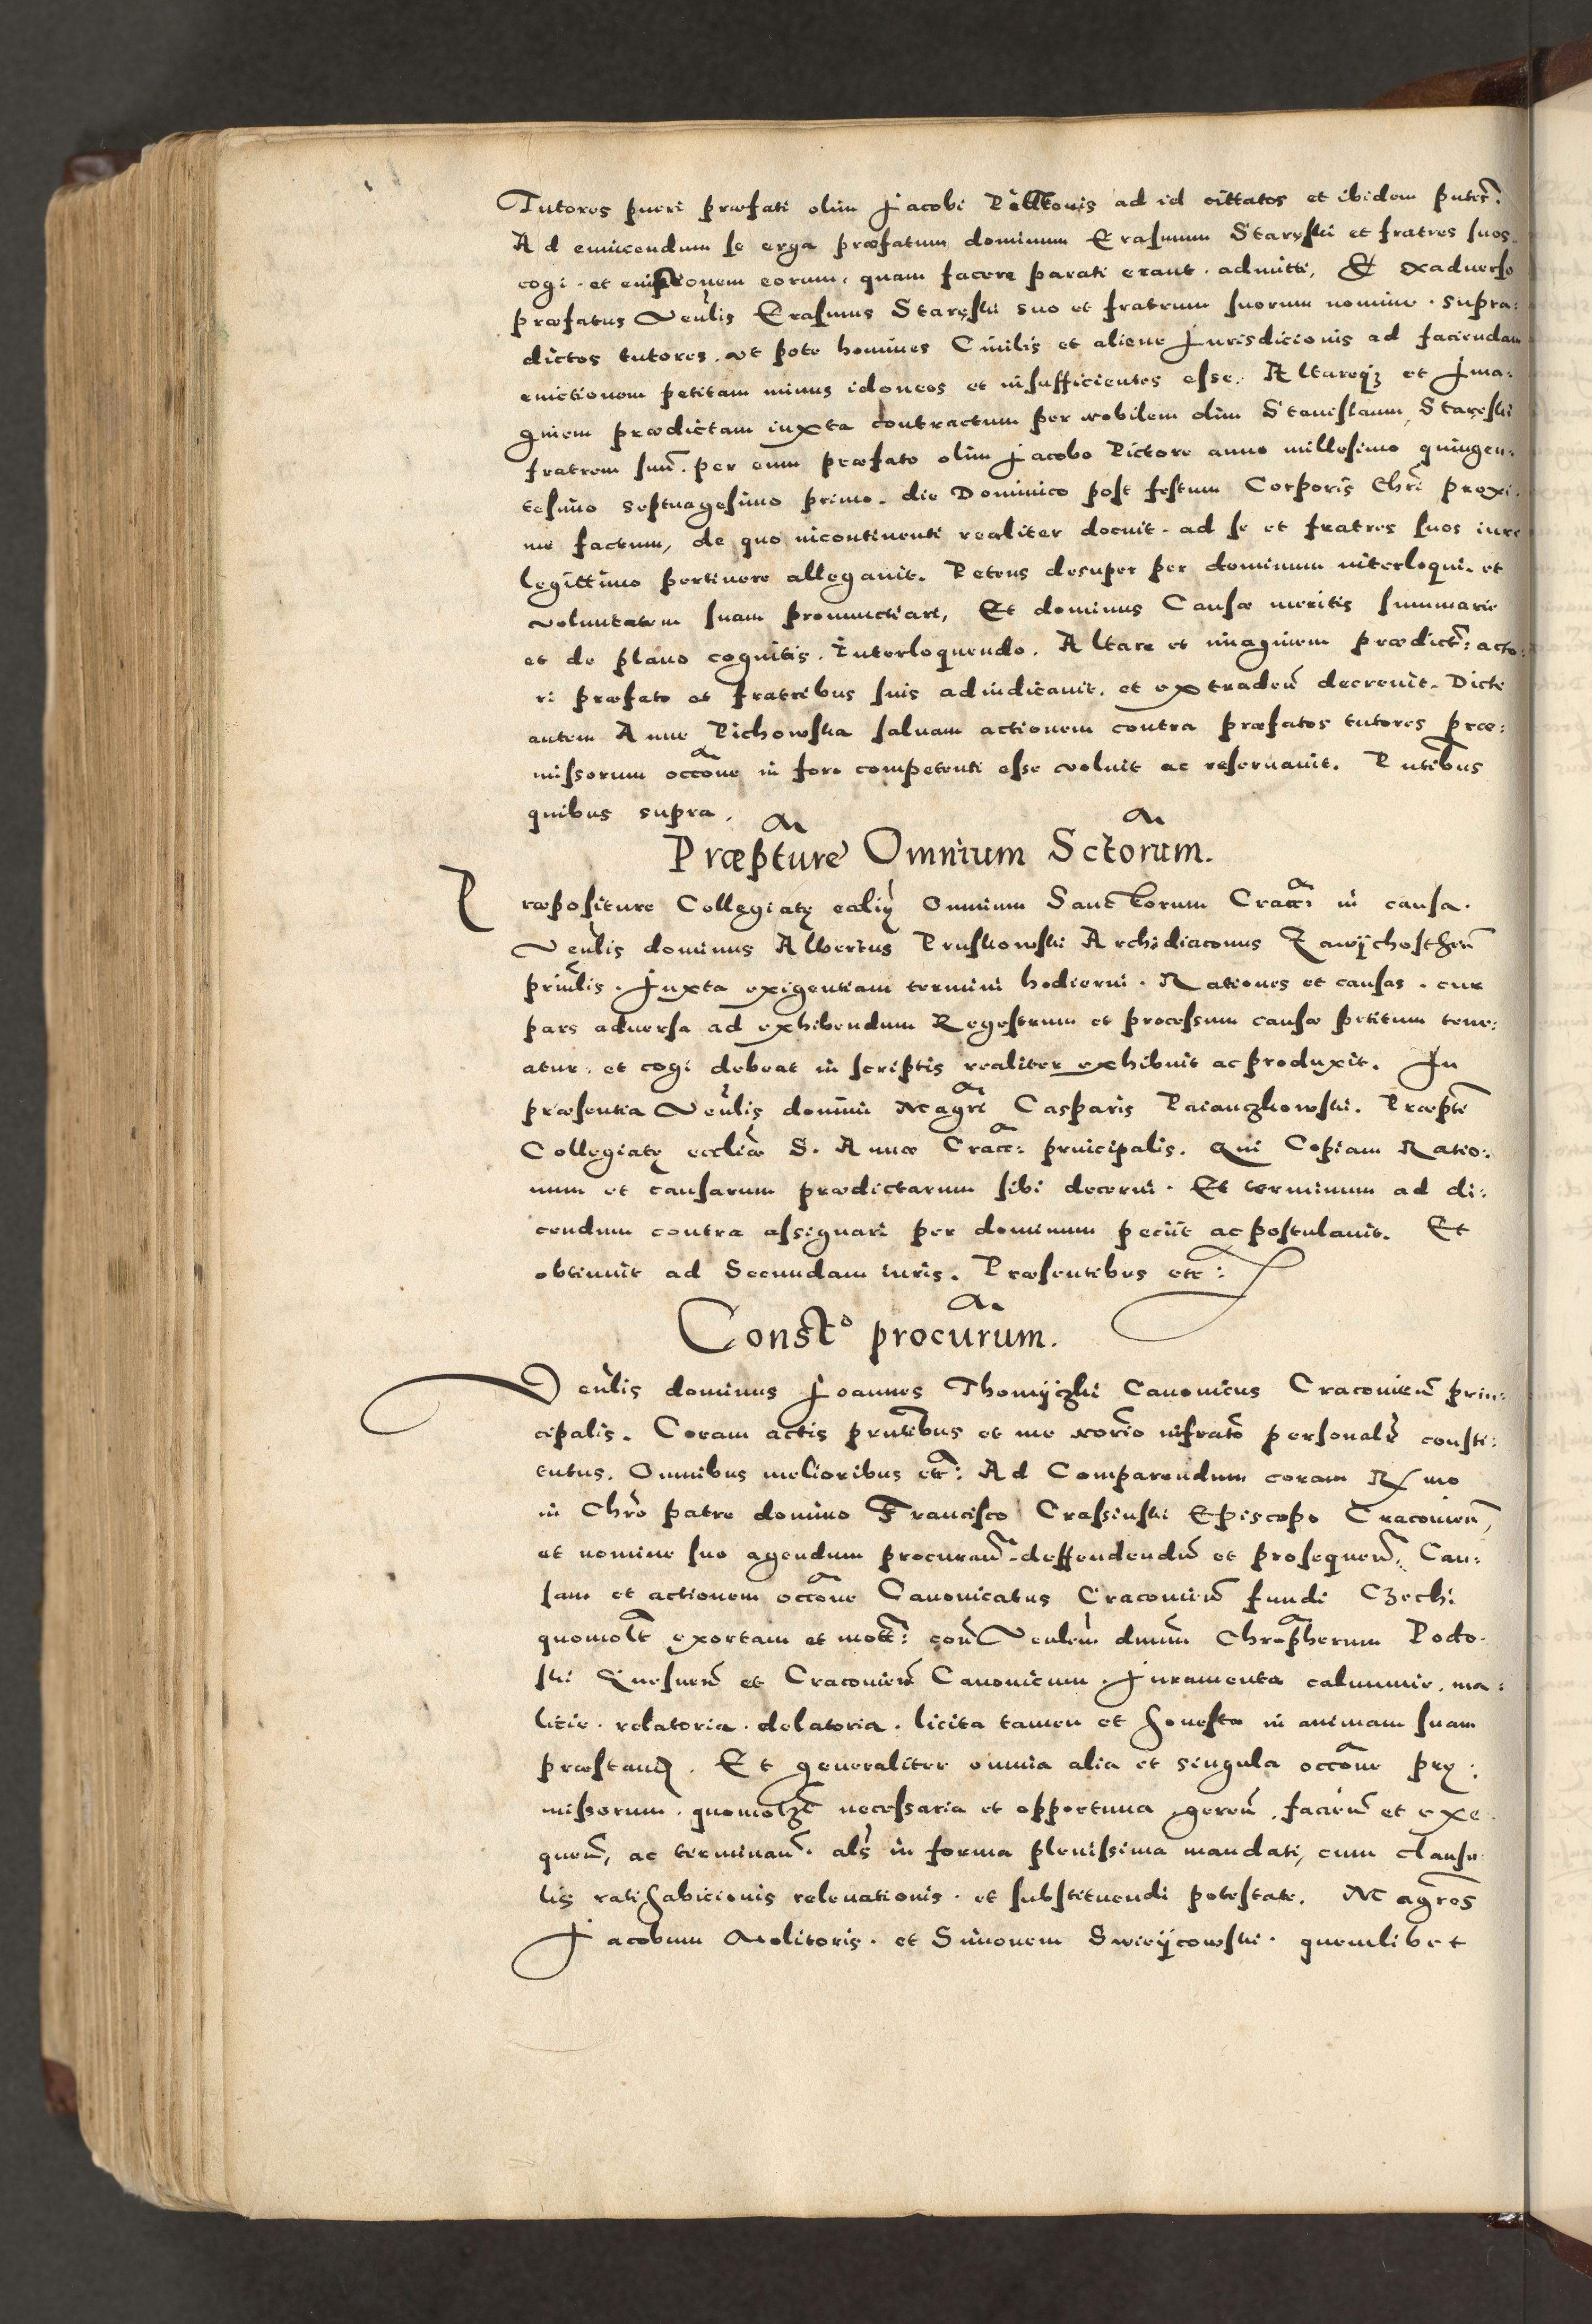 Tutores pueri præfati olim Jacobi Pictoris ad id cittatos et ibidem pntes.
Ad emincendum se erga præfatum dominum Erasmum Staręski et fratres suos
cogi. et enictionem eorum, quam facere parati erant. admitti, Et exaduerso
præfatus Venlis Erasmus Staręski suo et fratrum suorum nomine. supra:
dictos tutores. vt pote homines Ciuilis et aliene Jurisdicionis ad faciendam
enictionem petitam minus idoneos et insufficientes esse. Altareqz et Jma:
ginem prædictam iuxta contractum per nobilem olim Stanislaum Staręski
fratrem suu. per eum præfato olim Jacobo Pictore anno millesimo quingen:
tesimo septuagesimo primo. die Dominico post festum Corporis Chri proxi:
me factum, de quo incontinenti realiter docuit. ad se et fratres suos iure
legittimo pertinere allegauit. Petens desuper per dominum interloqui. et
voluntatem suam pronunctiari, Et dominus Causæ meritis summarie
et de plano cognitis. Interloquendo. Altare et imaginem prædict: acto:
ri præfato et fratribus suis adiudicauit. et extraden decreuit. Dicte
autem Anne Pichowska saluam actionem contra præfatos tutores præ:
missorum occone in foro competenti esse voluit ac reseruauit. Pntibus
quibus supra.
Præpture Omnium Sctorum.
Præpositure Collegiatę ecalię Omnium Sanctorum Cracc: in causa.
Venlis dominus Albertus Pruskowski Archidiaconus Zawÿchosthen
prinlis. Juxta exigentiam termini hodierni. Rationes et causas. cur
pars aduersa ad exhibendum Regestrum et processum causæ petitum tene:
atur. et cogi debeat in scriptis realiter exhibuit ac produxit. In
præsentia Venlis domini Magri Casparis Paianczkowski. Præpti
Collegiatę eccliæ S. Annæ Cracc: principalis. Qui Copiam Ratio:
num et causarum prædictarum sibi decerni. Et terminum ad di:
cendum contra assignari per dominum peciit ac postulauit. Et
obtinuit ad Secundam iuris. Præsentibus etc:
Constto procurum.
Venlis dominus Joannes Thomÿczki Canonicus Cracouien prin:
cipalis. Coram actis pntibus et me notorio infrato personalr consti:
tutus. Omnibus melioribus etc: Ad Comparendum coram Rmo
in Chro patre domino Francisco Crassinski Episcopo Cracouien,
et nomine suo agendum procuran. deffendendu et prosequen. Cau:
sam et actionem occone Canonicatus Cracouien fundi Czechi
quomolt exortam et mott: con Venlem dnum Chrõpherum Podo:
ski Gnesnen et Cracouien Canonicum. Juramenta calumnie. ma:
licie. relatoria. delatoria. licita tamen et honesta in animam suam
præstand. Et generaliter omnia alia et singula occone pręː
missorum. quomolzt necessaria et opportuna geren. facien et exe:
quen, ac terminan. als in forma plenissima mandati, cum clausu:
lis ratihabicionis releuationis. et substituendi potestate. Magros
Jacobum Molitoris. et Simonem Swieÿcowski. quemlibet